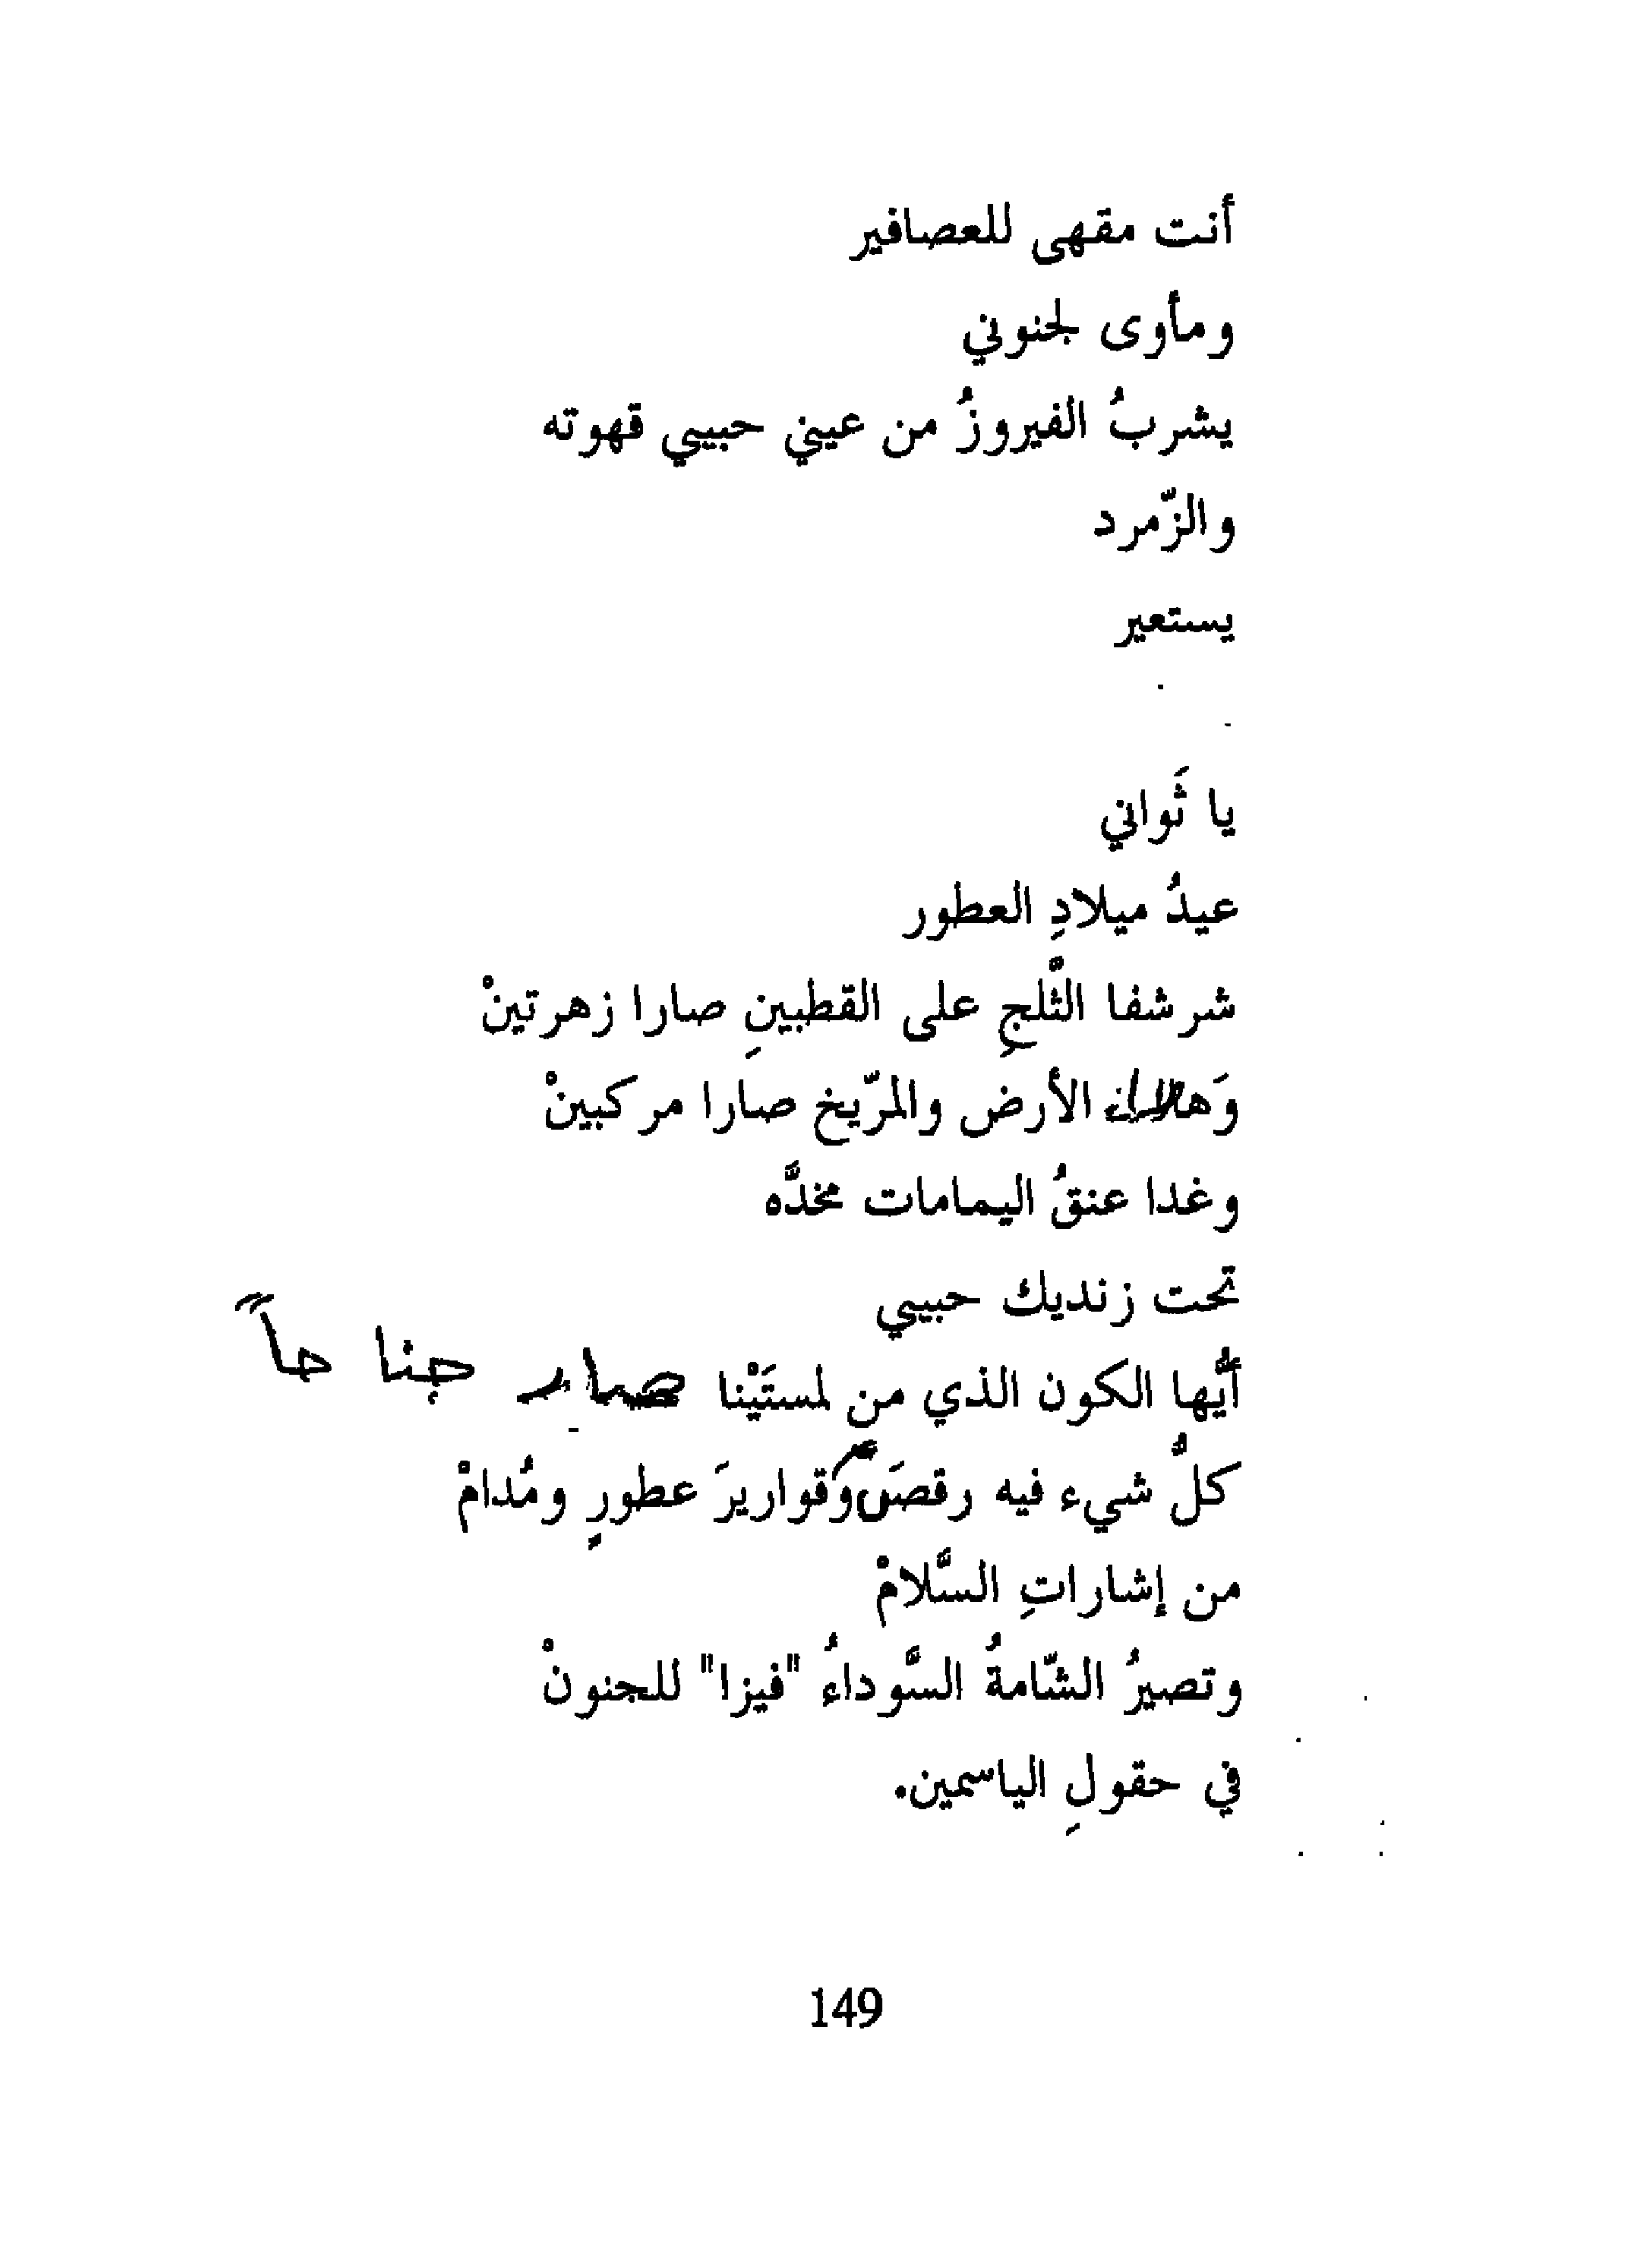 أنت مقهى للعصافير
ومأوى لجنوني
يشربُ الفيروزُ من عيني حبيبي قهوته
والزّمرد
يستعير
يا ثَواني
عيدُ ميلادِ العطور
شرشفا الثَّلجِ على القطبينِ صارا زهرتينْ
وَهلالا الأرض والمرّيخ صارا مركبينْ
وغدا عنقُ اليمامات مخدَّه
تحت زنديك حبيبي
أيُّها الكون الذي من لمستَيْنا صار جناحاً
كلُّ شيء فيه رقصَ وقواريرَ عطورٍ ومُدامْ
من إشاراتِ السَّلامْ
وتصيرُ الشّامةُ السَّوداءُ "فيزا" للجنونْ
في حقولِ الياسمين.
149